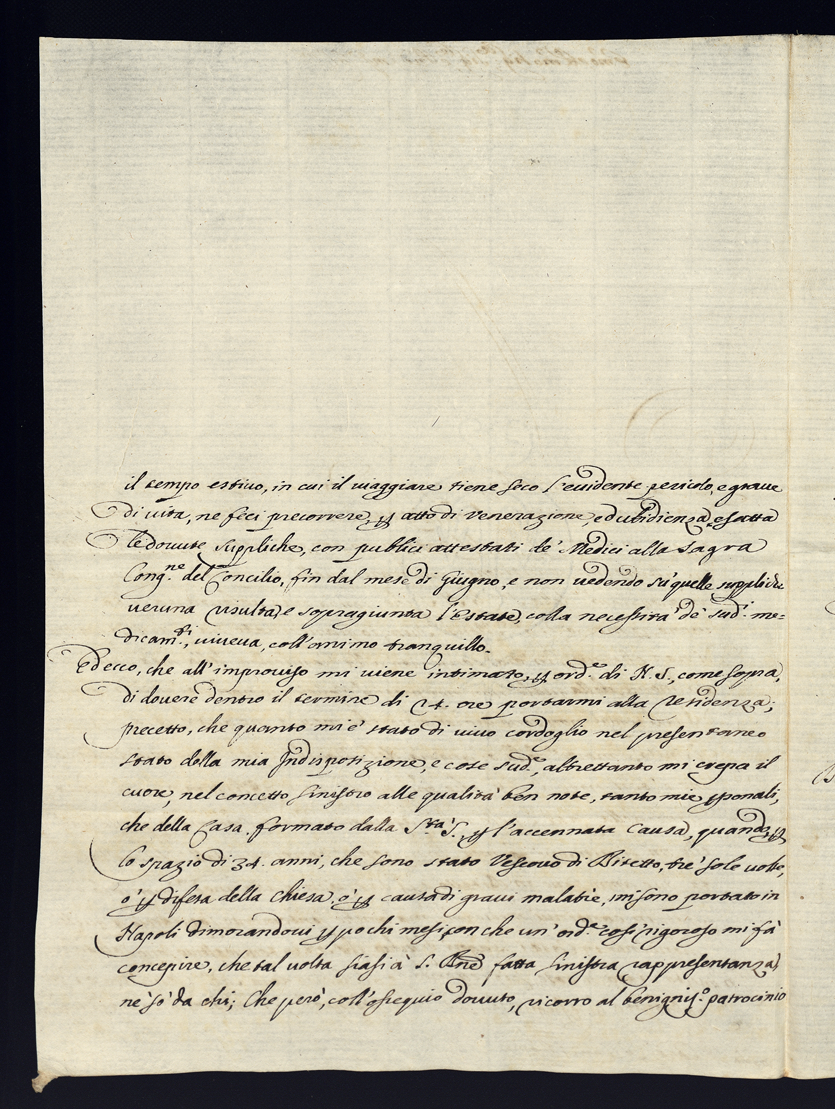 il tempo estiuo, in cui il uiaggiare tiene seco l'euidente pericolo, e graue
di uita, ne feci precorrere, p atto di Venerazione, ed ubidienza, esatta
le douute suppliche, con publici attestati de' Medici alla Sagra
Cong.ne del Concilio, fin dal mese di Giugno, e non uedendo sù quelle suppliche
ueruna risulta, e sopragiunta l'Estate, colla necessità de' sud.i me=
dicam.ti, uiueua, coll'animo tranquillo.
Ed ecco, che all'improuiso mi uiene intimato, p ord.e di N. S., come sopra,
di douere dentro il termine di 24. ore portarmi alla residenza;
precetto, che quanto mi è stato di uiuo cordoglio nel presentaneo
stato della mia Indisposizione, e cose sud.e, altrettanto mi crepa il
cuore, nel concetto sinistro alle qualità ben note, tanto mie psonali,
che della Casa, formato dalla S.tà S., p l'accennata causa, quando, p
lo spazio di 34. anni, che sono stato Vescouo di Bitetto, trè sole uolte,
ò p difesa della Chiesa, ò p causa di graui malatie, mi sono portato in
Napoli dimorandoui p pochi mesi, con che un' ord.e così rigoroso mi fà
concepire, che tal uolta siasi à S. Bne fatta sinistra rappresentanza,
nè sò da chi; Che però, coll'ossequio douuto, ricorro al benignis.o patrocinio